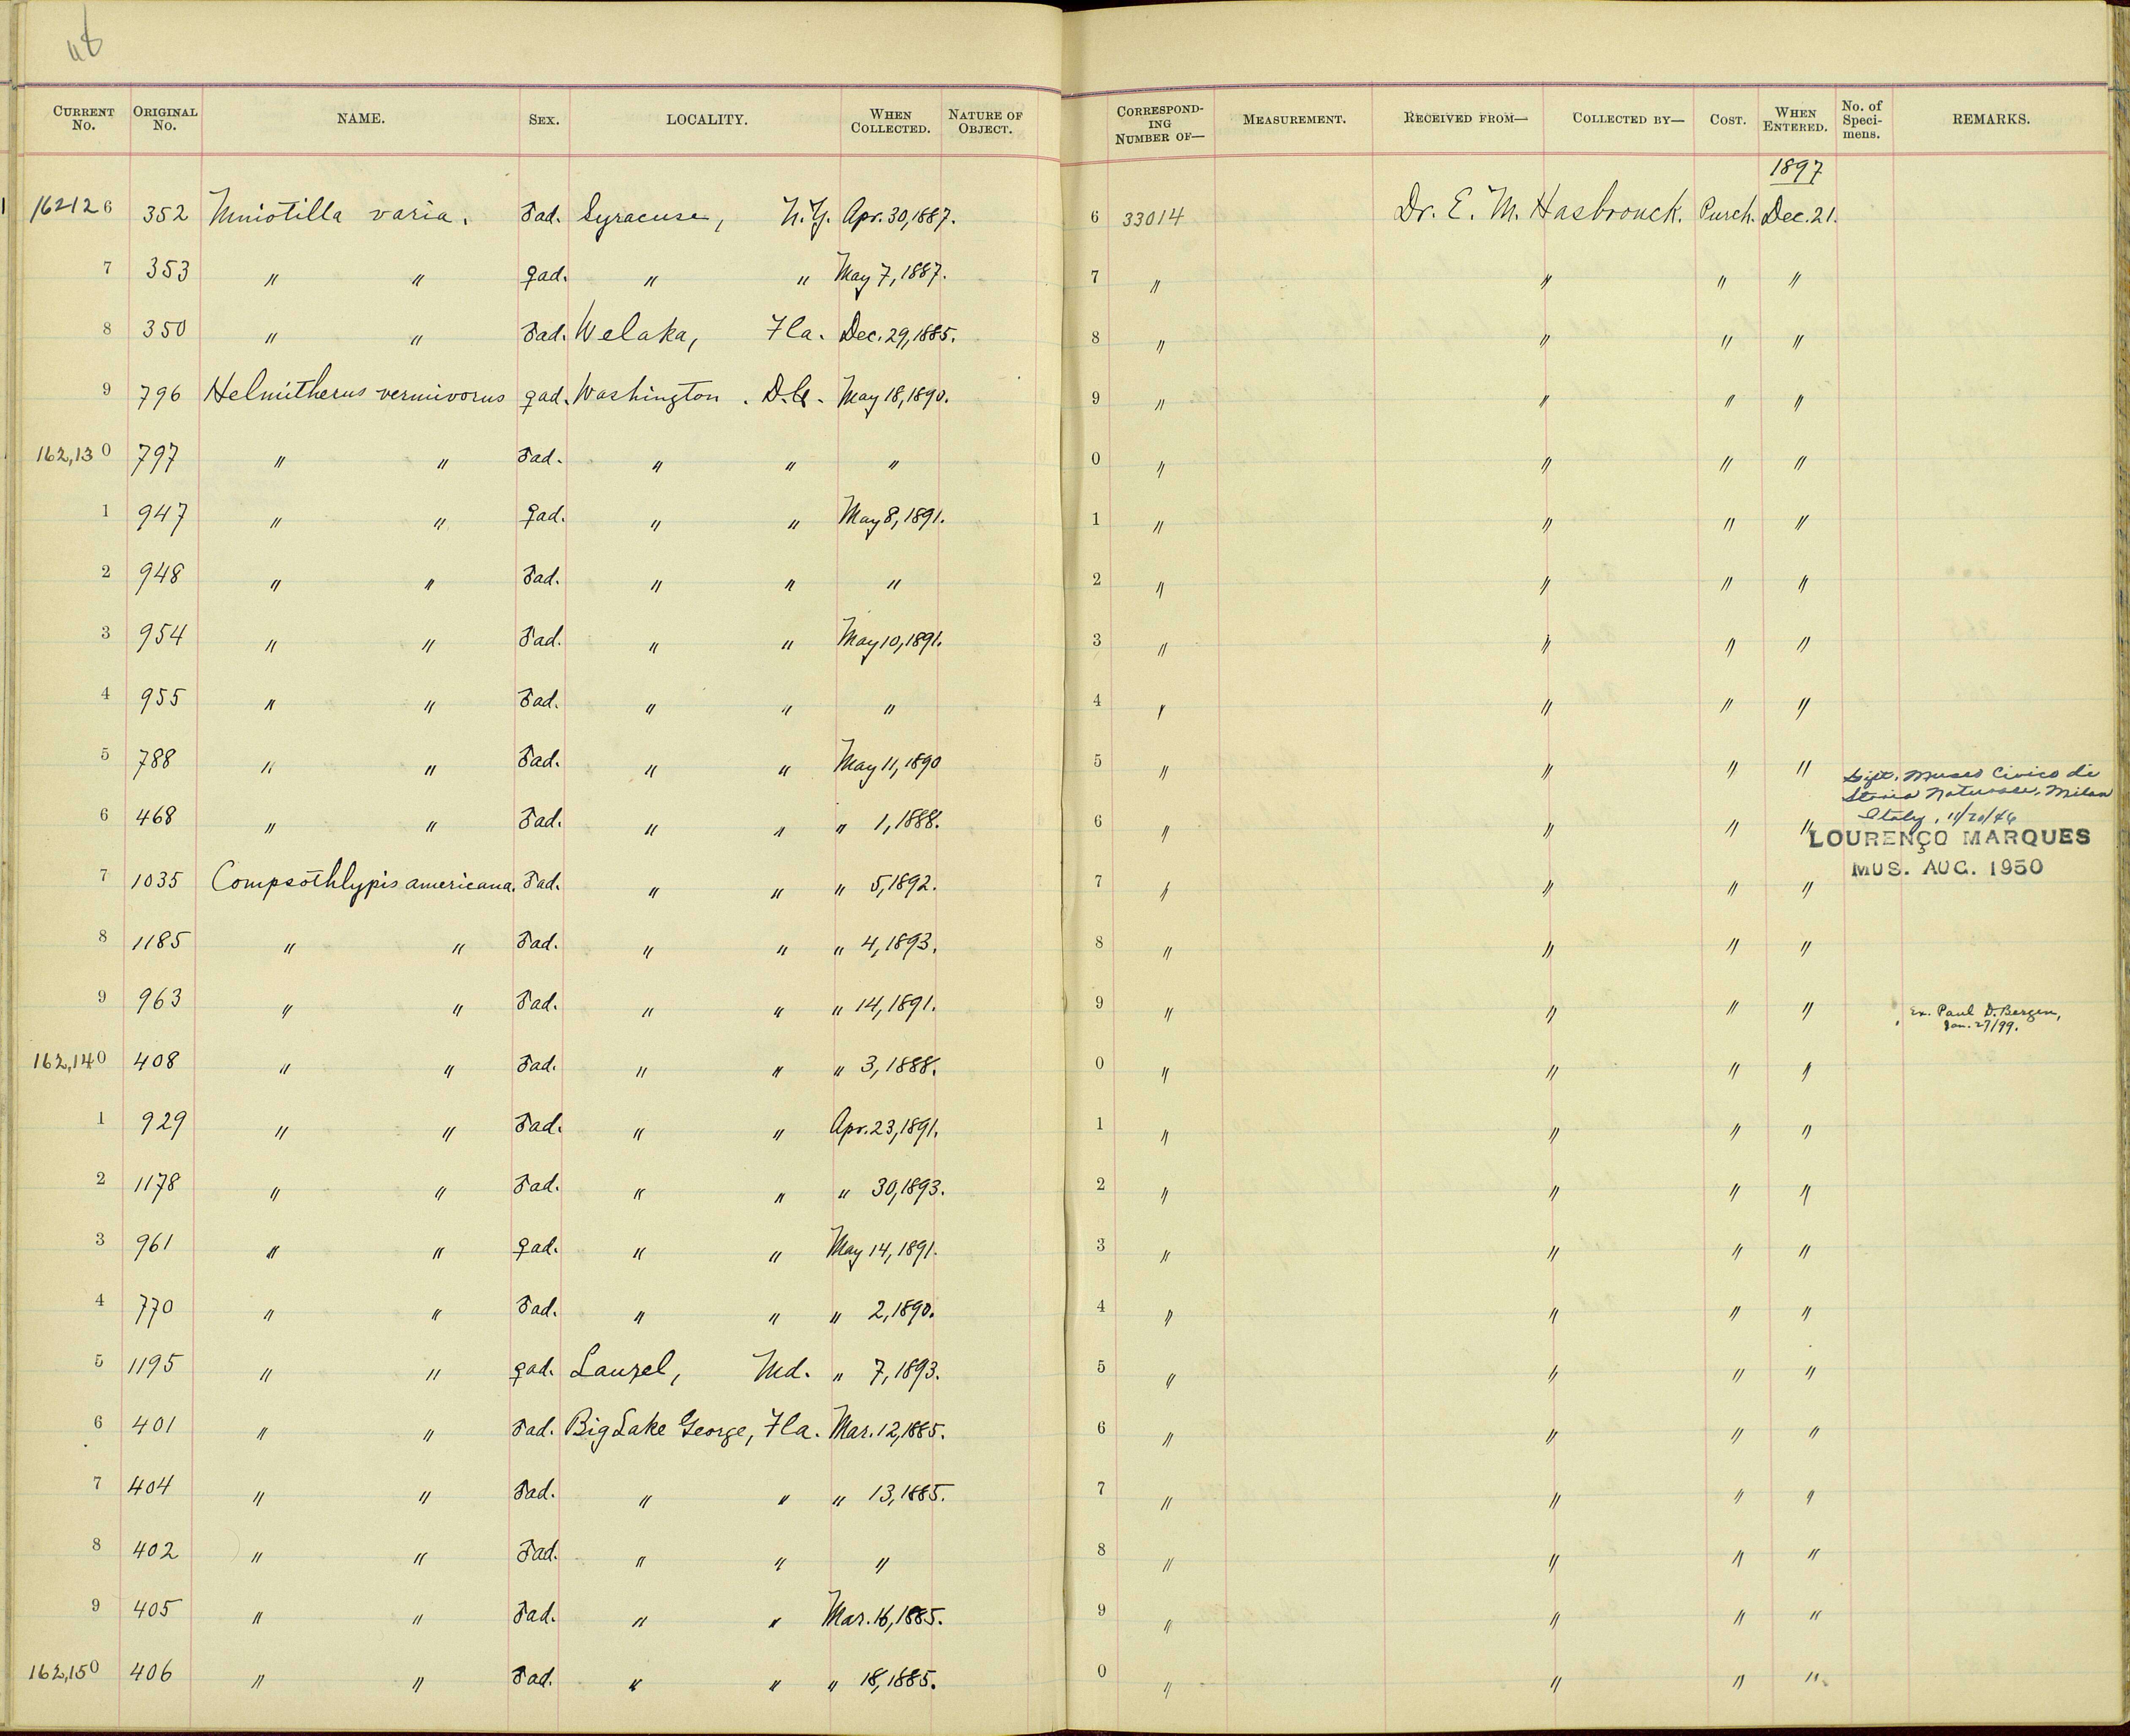 CURRENT No. ORIGINAL No. NAME. SEX. LOCALITY. WHEN COLLECTED. NATURE OF OBJECT. CORRESPONDING NUMBER OF— MEASUREMENT. RECEIVED FROM— COLLECTED BY— COST. WHEN ENTERED. No. of Specimens. REMARKS.
1897
162126 352 Mniotilla varia. ♂ad. Syracuse, N.Y. Apr. 30, 1887. 6 33014 Dr. E. M. Hasbrouck. Purch. Dec. 21.
7 353 " " ♀ad. " " May 7, 1887. 7 " " " "
8 350 " " ♂ad. Welaka, Fla. Dec. 29, 1885. 8 " " " "
9 796 Helmitherus vermivorus ♀ad. Washington. D.C. May 18, 1890. 9 " " " "
162,130 797 " " ♂ad. " " " 0 " " " "
1 947 " " ♀ad. " " May 8, 1891. 1 " " " "
2 948 " " ♂ad. " " " 2 " " " "
3 954 " " ♂ad. " " May 10, 1891. 3 " " " "
4 955 " " ♂ad. " " " 4 " " " "
5 788 " " ♂ad. " " May 11, 1890 5 " " " " Gift. Museo Civico di
Storia Naturale, Milan
Italy, 11/20/46
6 468 " " ♂ad. " " " 1, 1888. 6 " " " " LOURENÇO MARQUES
MUS. AUG. 1950
7 1035 Compsothlypis americana. ♂ad. " " " 5, 1892. 7 " " " "
8 1185 " " ♂ad. " " " 4, 1893. 8 " " " "
9 963 " " ♂ad. " " " 14, 1891. 9 " " " " Ex. Paul D. Bergen,
Jan. 27/99.
162,140 408 " " ♂ad. " " " 3, 1888. 0 " " " "
1 929 " " ♂ad. " " Apr. 23, 1891. 1 " " " "
2 1178 " " ♂ad. " " " 30, 1893. 2 " " " "
3 961 " " ♀ad. " " May 14, 1891. 3 " " " "
4 770 " " ♂ad. " " " 2, 1890. 4 " " " "
5 1195 " " ♀ad. Laurel, Md. " 7, 1893. 5 " " " "
6 401 " " ♂ad. Big Lake George, Fla. Mar. 12, 1885. 6 " " " "
7 404 " " ♂ad. " " " 13, 1885. 7 " " " "
8 402 " " ♂ad. " " " 8 " " " "
9 405 " " ♂ad. " " Mar. 16, 1885. 9 " " " "
162,150 406 " " ♂ad. " " " 18, 1885. 0 " " " "